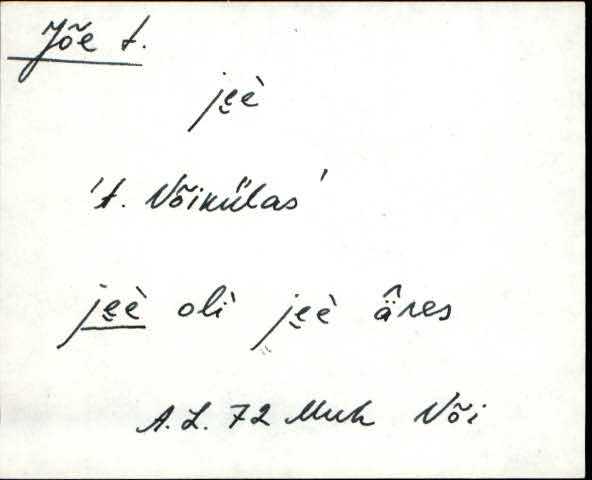 Jõe t.
je̮è
't. Võikülas'
je̮è oli je̮è ä̂res
A.L. 72 Muh Või